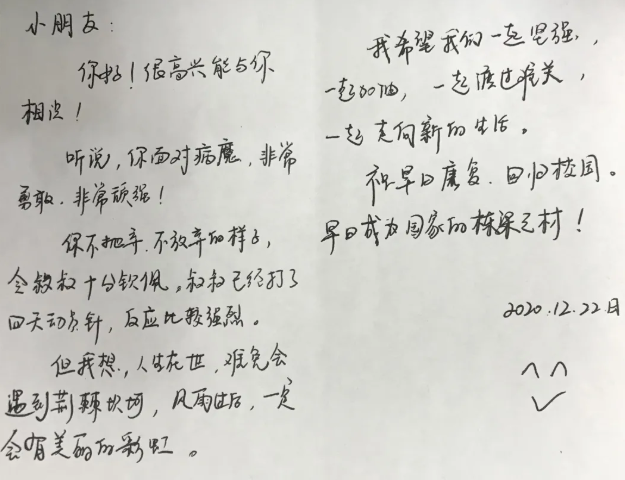 小朋友：
你好！很高兴能与你
相识！
听说，你面对病魔，非常
勇敢．非常顽强！
你不抛弃．不放弃的样子，
令叔叔十分钦佩。叔叔已经打了
四天动员针，反应比较强烈。
但我想，人生在世，难免会
遇到荆棘坎坷，风雨过后，一定
会有美丽的彩虹。
我希望我们一起坚强，
一起加油，一起渡过难关，
一起走向新的生活。
祝早日康复．回归校园。
早日成为国家的栋梁之材！
2020.12.22日